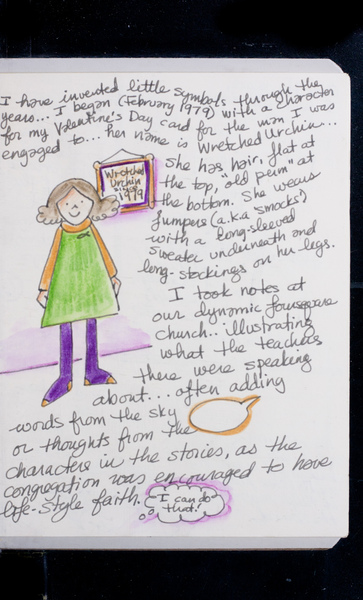 I have invented little symbols through the
years... I began (February 1979) with a character
for my Valentine's Day card for the man I was
engaged to... her name is Wretched Urchin...
Wretched
Urchin
est.
1979
She has hair, flat at
the top, "old perm" at
the bottom. She wears
jumpers (a.k.a 'smocks')
with a long-sleeved
sweater underneath and
long-stockings on her legs.
I took notes at
our dynamic foursquare
church... illustrating
what the teachers
there were speaking
about.... often adding
words from the sky
or thoughts from the
characters in the stories, as the
congregation was encouraged to have
life-style faith.
I can do
that!